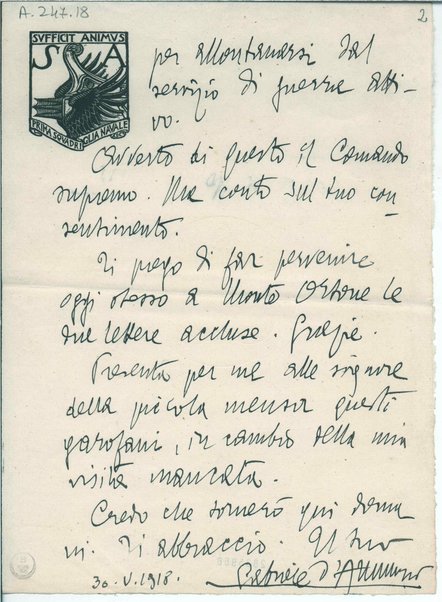 A.247.18
2
SVFFICIT ANIMVS
S A
PRIMA SQVADRIGLIA NAVALE
per allontanarsi dal
servizio di guerra atti-
vo.
Avverto di questo il Comando
supremo. Ma conto sul tuo con
sentimento.
Ti prego di far pervenire
oggi stesso a Monto Ortone le
due lettere accluse. Grazie.
Presenta per me alle signore
della piccola mensa questi
garofani, in cambio della mia
visita mancata.
Credo che tornerò qui doma
ni. Ti abbraccio. Il tuo
30.V.1918. Gabriele d'Annunzio